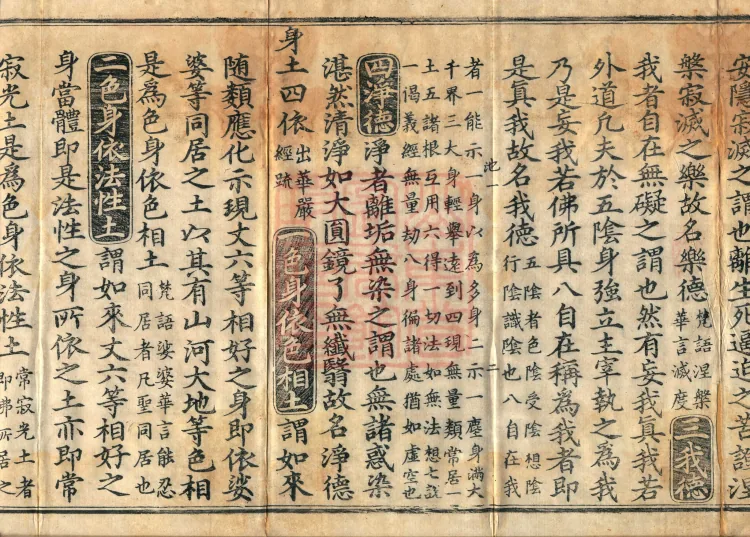 安隱寂滅之謂也離生死逼迫之苦證涅
槃寂滅之樂故名樂德
梵語涅槃
華言滅度
三我德
我者自在無礙之謂也然有妄我真我若
外道凡夫於五陰身強立主宰執之為我
乃是妄我若佛所具八自在稱為我者即
是眞我故名我德
五陰者色陰受陰想陰
行陰識陰也八自在我
池一 二
者一能示一身以為多身二示一塵身滿大
千界三大身輕舉遠到四現無量類常居一
土五諸根互用六得一切法如無法想七說
一偈義經無量劫八身徧諸處猶如虛空也
四淨德
淨者離垢無染之謂也無諸惑染
湛然清淨如大圓鏡了無纖翳故名淨德
身土四依
出華嚴
經䟽
一色身依色相土
謂如來
随類應化示現丈六等相好之身即依娑
婆等同居之土以其有山河大地等色相
是為色身依色相土
梵語娑婆華言能忍
同居者凡聖同居也
二色身依法性土
謂如來丈六等相好之
身當體即是法性之身所依之土亦即常
寂光土是為色身依法性土
常寂光土者
即佛所居之